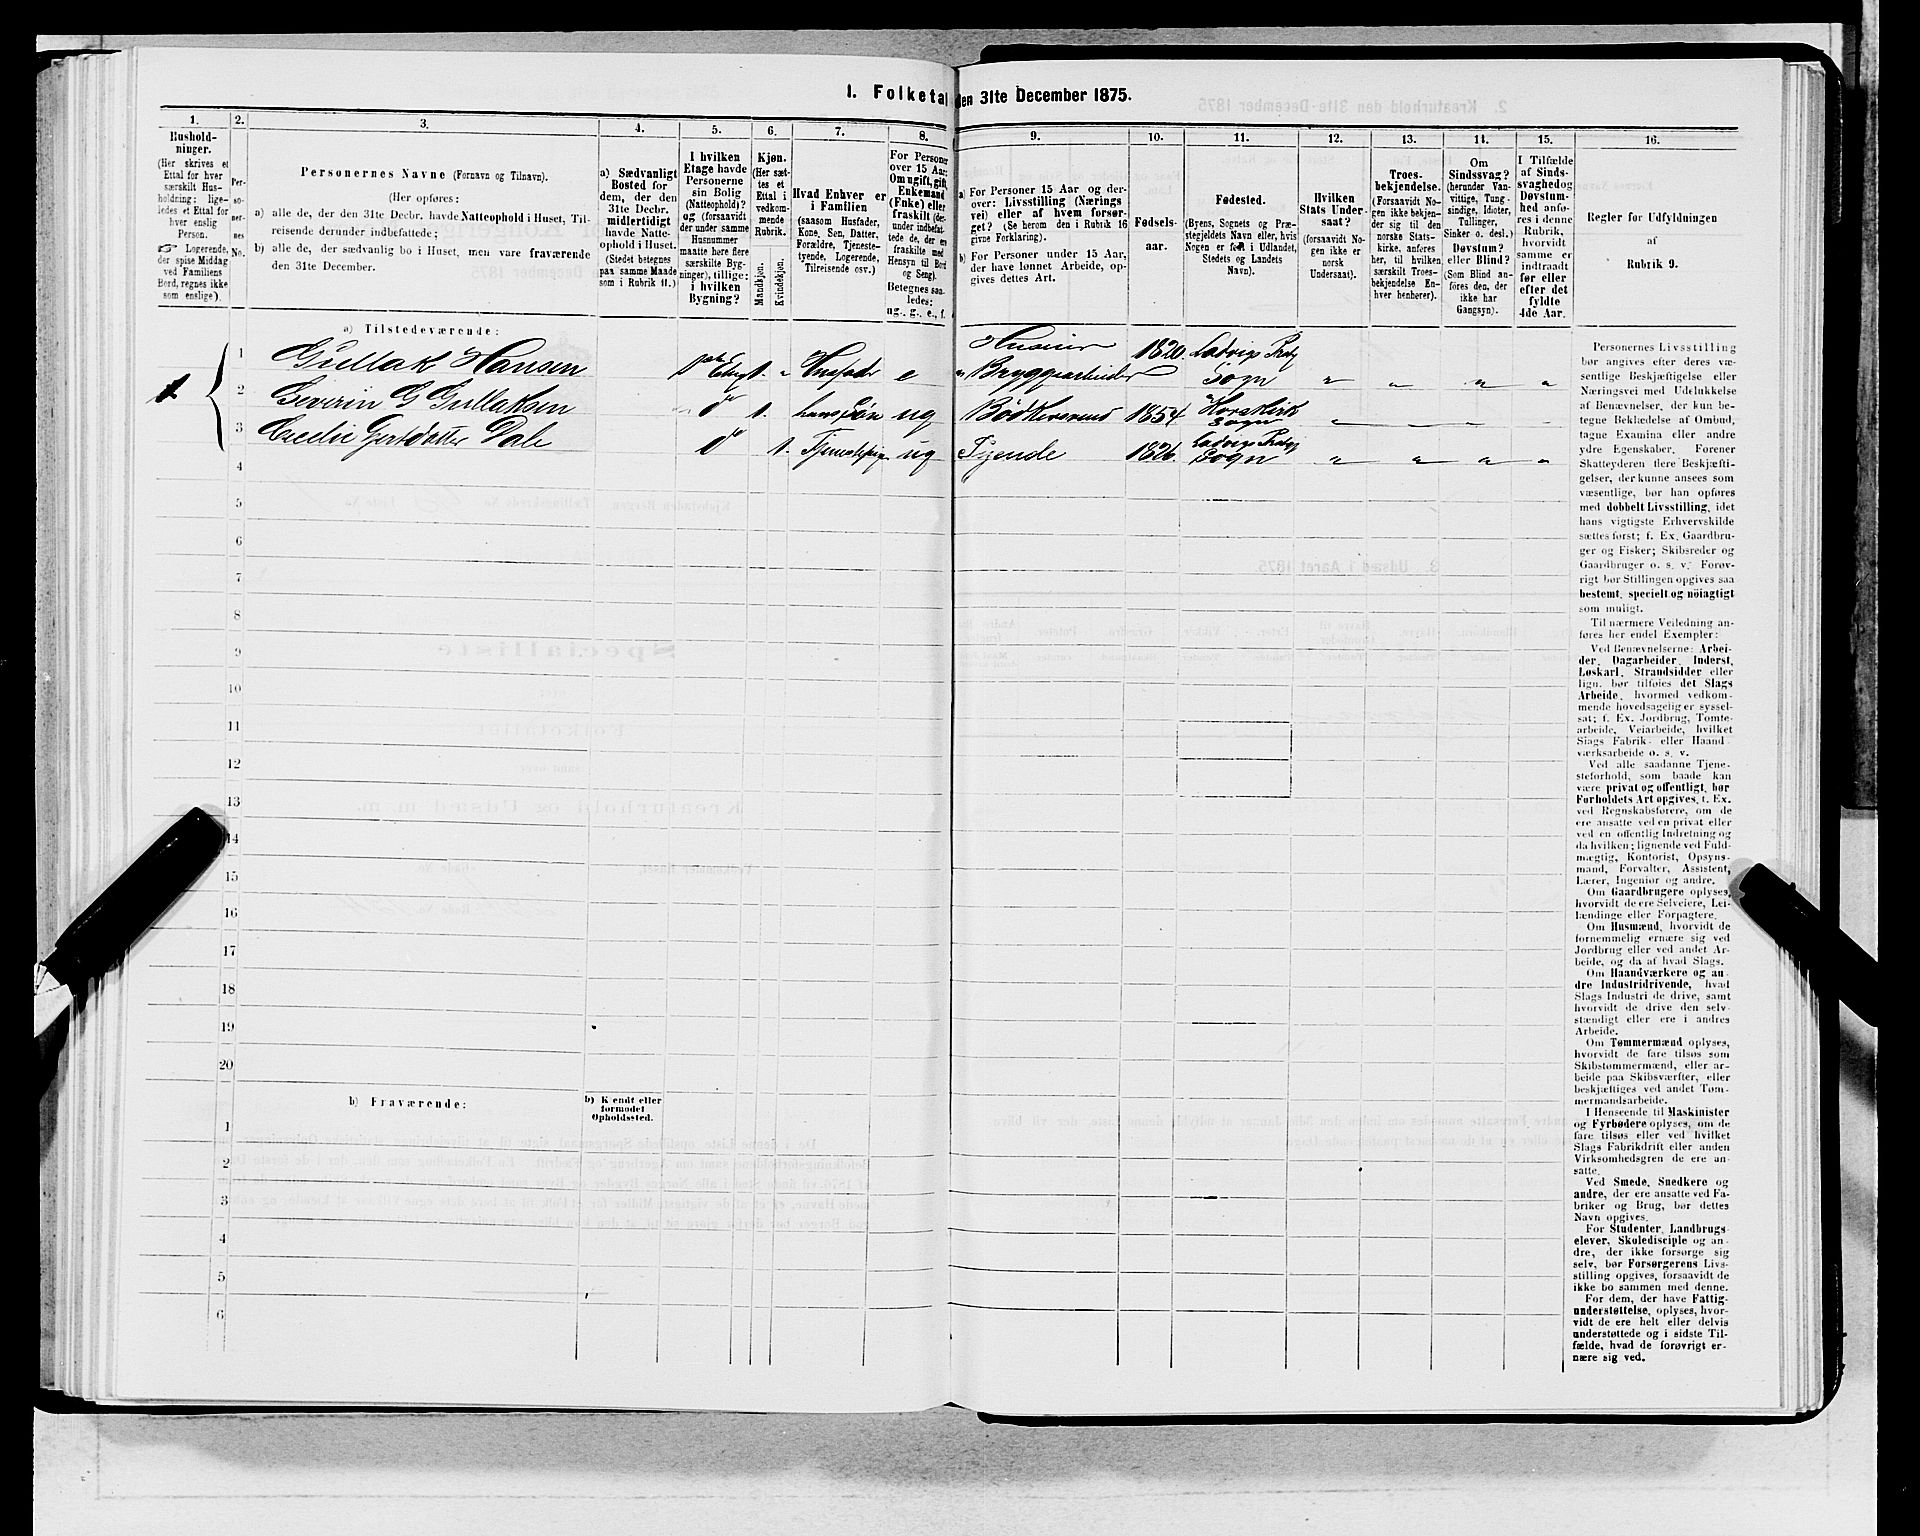 1. Folketal den 31te December 1875.
1.
Hushold-
ninger.
(Her skrives et
Ettal for hver
særskilt Hus-
holdning; lige-
ledes et Ettal for
hver enslig
Person.
☞ Logerende,
der spise Middag
ved Familiens
Bord, regnes ikke
som enslige).
2.
Per-
so-
ner-
nes
No.
3.
Personernes Navne (Fornavn og Tilnavn).
(Her opføres:
a) alle de, der den 31te Decbr. havde Natteophold i Huset, Til-
reisende derunder indbefattede;
b) alle de, der sædvanlig bo i Huset, men vare fraværende
den 31te December.
4.
a) Sædvanligt
Bosted for
dem, der den
31te Decbr.
midlertidigt
havde Natte-
ophold i Huset.
(Stedet betegnes
paa samme Maade
som i Rubrik 11.)
5.
I hvilken
Etage havde
Personerne
sin Bolig
(Natteophold)?
og (forsaavidt
der under samme
Husnummer
maatte høre flere
særskilte Byg-
ninger), tillige:
i hvilken
Bygning?
6.
Kjøn.
(Her sæt-
tes et
Ettal i
vedkom-
mende
Rubrik.
Mandkjøn.
Kvindekjøn.
7.
Hvad Enhver er
i Familien
(saasom Husfader,
Kone, Søn, Datter,
Forældre, Tjeneste-
tyende, Logerende,
Tilreisende osv.)
8.
For Personer
over 15 Aar:
Om ugift, gift,
Enkemand
(Enke) eller
fraskilt (der-
under indbefat-
tede de, der ere
fraskilte med
Hensyn til Bord
og Seng).
Betegnes saa-
ledes:
ug., g., e., f.
9.
a) For Personer 15 Aar og der-
over: Livsstilling (Nærings-
vei) eller af hvem forsør-
get? (Se herom den i Rubrik 16
givne Forklaring).
b) For Personer under 15 Aar,
der have lønnet Arbeide, op-
gives dettes Art.
10.
Fødsels-
aar.
11.
Fødested.
(Byens, Sognets og Præ-
stegjeldets Navn eller, hvis
Nogen er født i Udlandet,
Stedets og Landets
Navn).
12.
Hvilken
Stats Under-
saat?
(forsaavidt No-
gen ikke er
norsk
Undersaat).
13.
Troes-
bekjendelse.
(Forsaavidt No-
gen ikke bekjen-
der sig til den
norske Stats-
kirke, anføres
her, til hvilken
særskilt Troes-
bekjendelse En-
hver henhører).
14.
Om
Sindssvag?
(herunder Van-
vittige, Tung-
sindige, Idioter,
Tullinger,
Sinker o. desl.)
Døvstum?
eller Blind?
(Som Blind an-
føres den, der
ikke har
Gangsyn).
15.
I Tilfælde
af Sinds-
svaghed og
Døvstum-
hed anfø-
res i denne
Rubrik,
hvorvidt
samme er
indtraadt
før eller
efter det
fyldte
4de Aar.
16.
Regler for Udfyldningen
af
Rubrik 9.
a) Tilstedeværende:
1 Gullak Hansen 1. " Husfader e Huseier " Bryggearbeider 1820. Ladvig Prstgj Sogn " " " "
1
2 Severin G Gullaksen " do 1. hans Søn ug Bødkersvend 1854 Sogn " " " "
3 Cecilie Gertsdatter Dale do 1. Tjenestepige ug Tjende 1826. Ladvig Prstgj Sogn " " " "
4
5
6
7
8
9
10
11
12
13
14
15
16
17
18
19
20
b) Fraværende:
b) Kjendt eller
formodet
Opholdssted.
1
2
3
4
5
6
Personernes Livsstilling
bør angives efter deres væ-
sentlige Beskjæftigelse eller
Næringsvei med Udelukkelse
af Benævnelser, der kun be-
tegne Beklædelse af Ombud,
tagne Examina eller andre
ydre Egenskaber. Forener
Skatteyderen flere Beskjæfti-
gelser, der kunne ansees som
væsentlige, bør han opføres
med dobbelt Livsstilling, idet
hans vigtigste Erhvervskilde
sættes først; f. Ex. Gaardbru-
ger og Fisker; Skibsreder og
Gaardbruger o. s. v. Forøv-
rigt bør Stillingen opgives saa
bestemt, specielt og nöiagtigt
som muligt.
Til nærmere Veiledning an-
føres her endel Exempler:
Ved Benævnelserne: Arbei-
der, Dagarbeider, Inderst,
Løskarl, Strandsidder eller
lign. bør tilføies det Slags
Arbeide, hvormed vedkom-
mende hovedsagelig er syssel-
sat; f. Ex. Jordbrug, Tomte-
arbeide, Veiarbeide, hvilket
Slags Fabrik- eller Haand
værksarbeide o. s. v.
Ved alle saadanne Tjene-
steforhold, som baade kan
være privat og offentligt, bør
Forholdets Art opgives, f. Ex.
ved Regnskabsførere, om de
ere ansatte ved en privat eller
ved en offentlig Indretning og
da hvilken; lignende ved Fuld-
mægtig, Kontorist, Opsyns-
mand, Forvalter, Assistent,
Lærer, Ingeniør og andre.
Om Gaardbrugere oplyses,
hvorvidt de ere Selveiere, Lei-
lændinge eller Forpagtere.
Om Husmænd, hvorvidt de
fornemmelig ernære sig ved
Jordbrug eller ved andet Ar-
beide, og da af hvad Slags.
Om Haandværkere og an
dre Industridrivende, hvad
Slags Industri de drive, samt
hvorvidt de drive den selv-
stændigt eller ere i andres
Arbeide.
Om Tømmermænd oplyses,
hvorvidt de fare tilsøs som
Skibstømmermænd, eller ar-
beide paa Skibsværfter, eller
beskjæftiges ved andet Tøm-
mermandsarbeide.
I Henseende til Maskinister
og Fyrbødere oplyses, om de
fare tilsøs eller ved hvilket
Slags Fabrikdrift eller anden
Virksomhedsgren de ere an-
satte.
Ved Smede, Snedkere og
andre, der ere ansatte ved Fa-
briker og Brug, bør dettes
Navn opgives.
For Studenter, Landbrugs-
elever, Skoledisciple og an-
dre, der ikke forsørge sig
selv, bør Forsørgerens Livs-
stilling opgives, forsaavidt de
ikke bo sammen med denne.
For dem, der have Fattig-
understøttelse, oplyses, hvor-
vidt de ere helt eller delvis
understøttede og i sidste Til-
fælde, hvad de forøvrigt er-
nære sig ved.